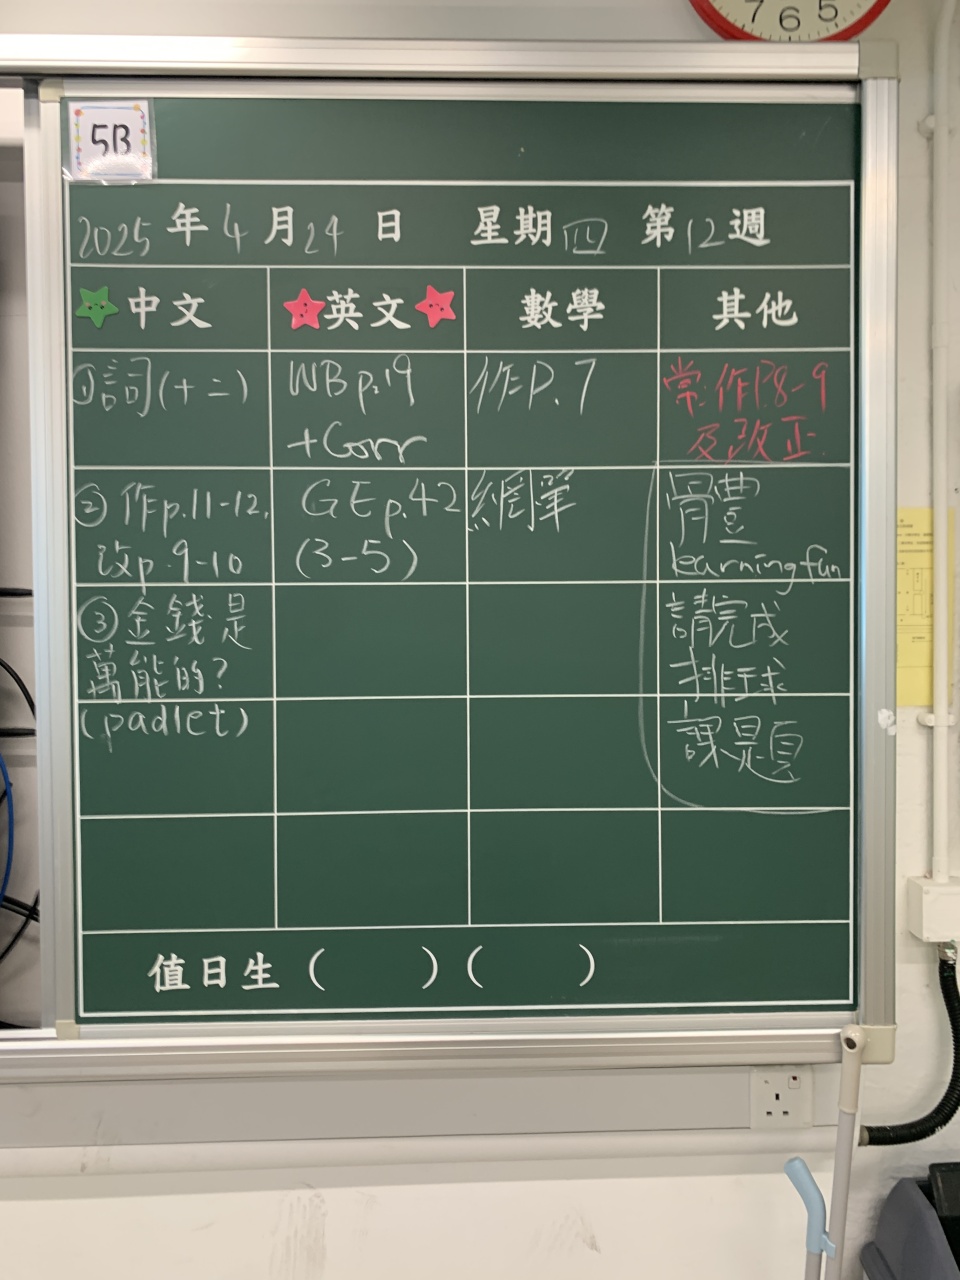 7 6 5
5B
2025年4月24日 星期四 第12週
中文 英文 數學 其他
①詞(十二)
②作p.11-12,
改p.9-10
③金錢是
萬能的?
(padlet)
WB p.19
+Corr
GE p.42
(3-5)
作P.7
網單
常:作P.8-9
及改正
體
learning fun
請完成
排球
課題
值日生 ( ) ( )